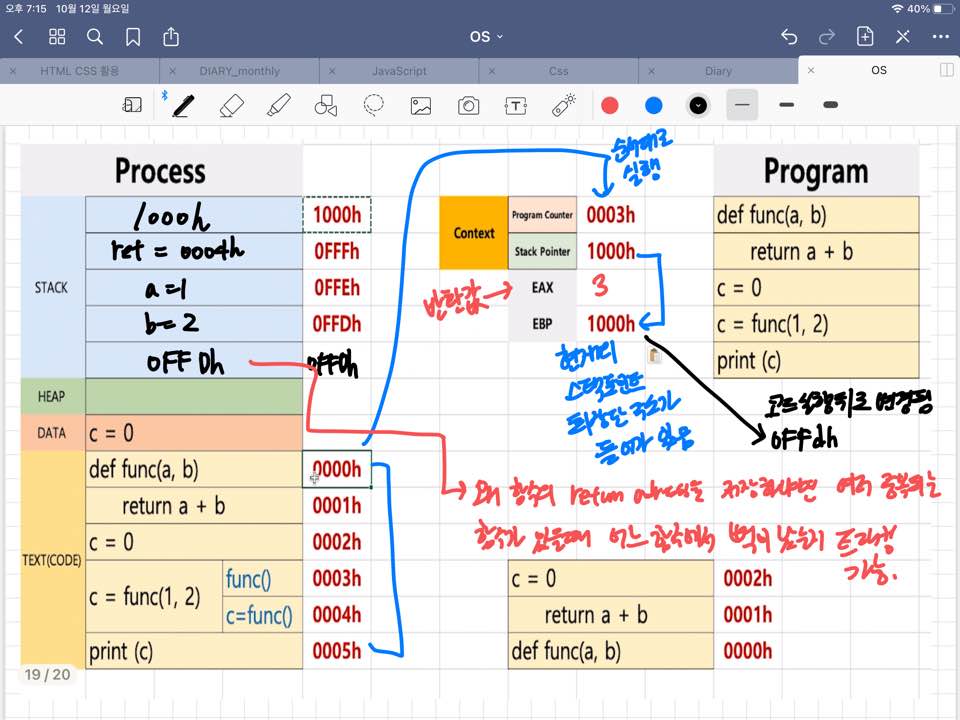 오후 7:15 10월 12일 월요일
40%
OS
HTML CSS 활용
DIARY_monthly
JavaScript
Css
Diary
OS
순서대로
실행
Process
Program
STACK
1000h
1000h
ret = 0004h
0FFFh
a=1
0FFEh
b=2
0FFDh
0FFDh
0FFDh
HEAP
DATA
c = 0
TEXT(CODE)
def func(a, b)
0000h
return a + b
0001h
c = 0
0002h
c = func(1, 2)
func()
0003h
c=func()
0004h
print (c)
0005h
19 / 20
Context
Program Counter
0003h
Stack Pointer
1000h
반환값
EAX
3
EBP
1000h
현재의
스택포인트
최상단 주소가
들어가 있음
def func(a, b)
return a + b
c = 0
c = func(1, 2)
print (c)
코드 실행뒤로 변경됨
0FFdh
왜 함수의 return address를 저장하냐면 여러 중복되는
함수가 있을때 어느 함수에서 가능.
c = 0
0002h
return a + b
0001h
def func(a, b)
0000h